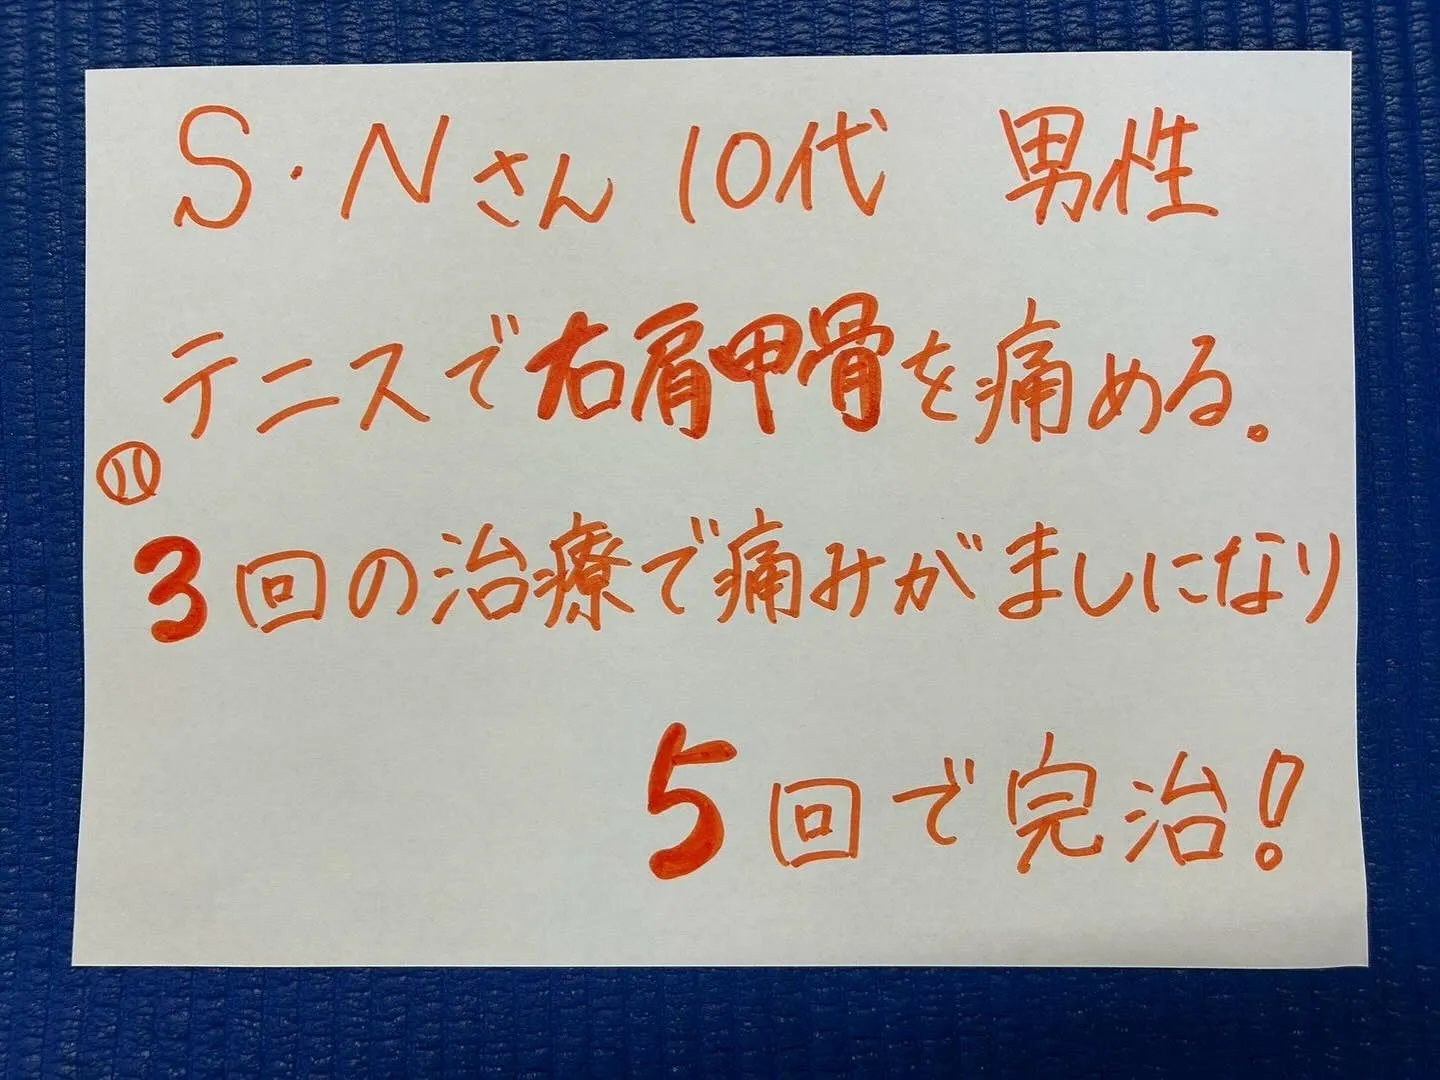 S・Nさん 10代 男性
テニスで右肩甲骨を痛める。
3回の治療で痛みがましになり
5回で完治!